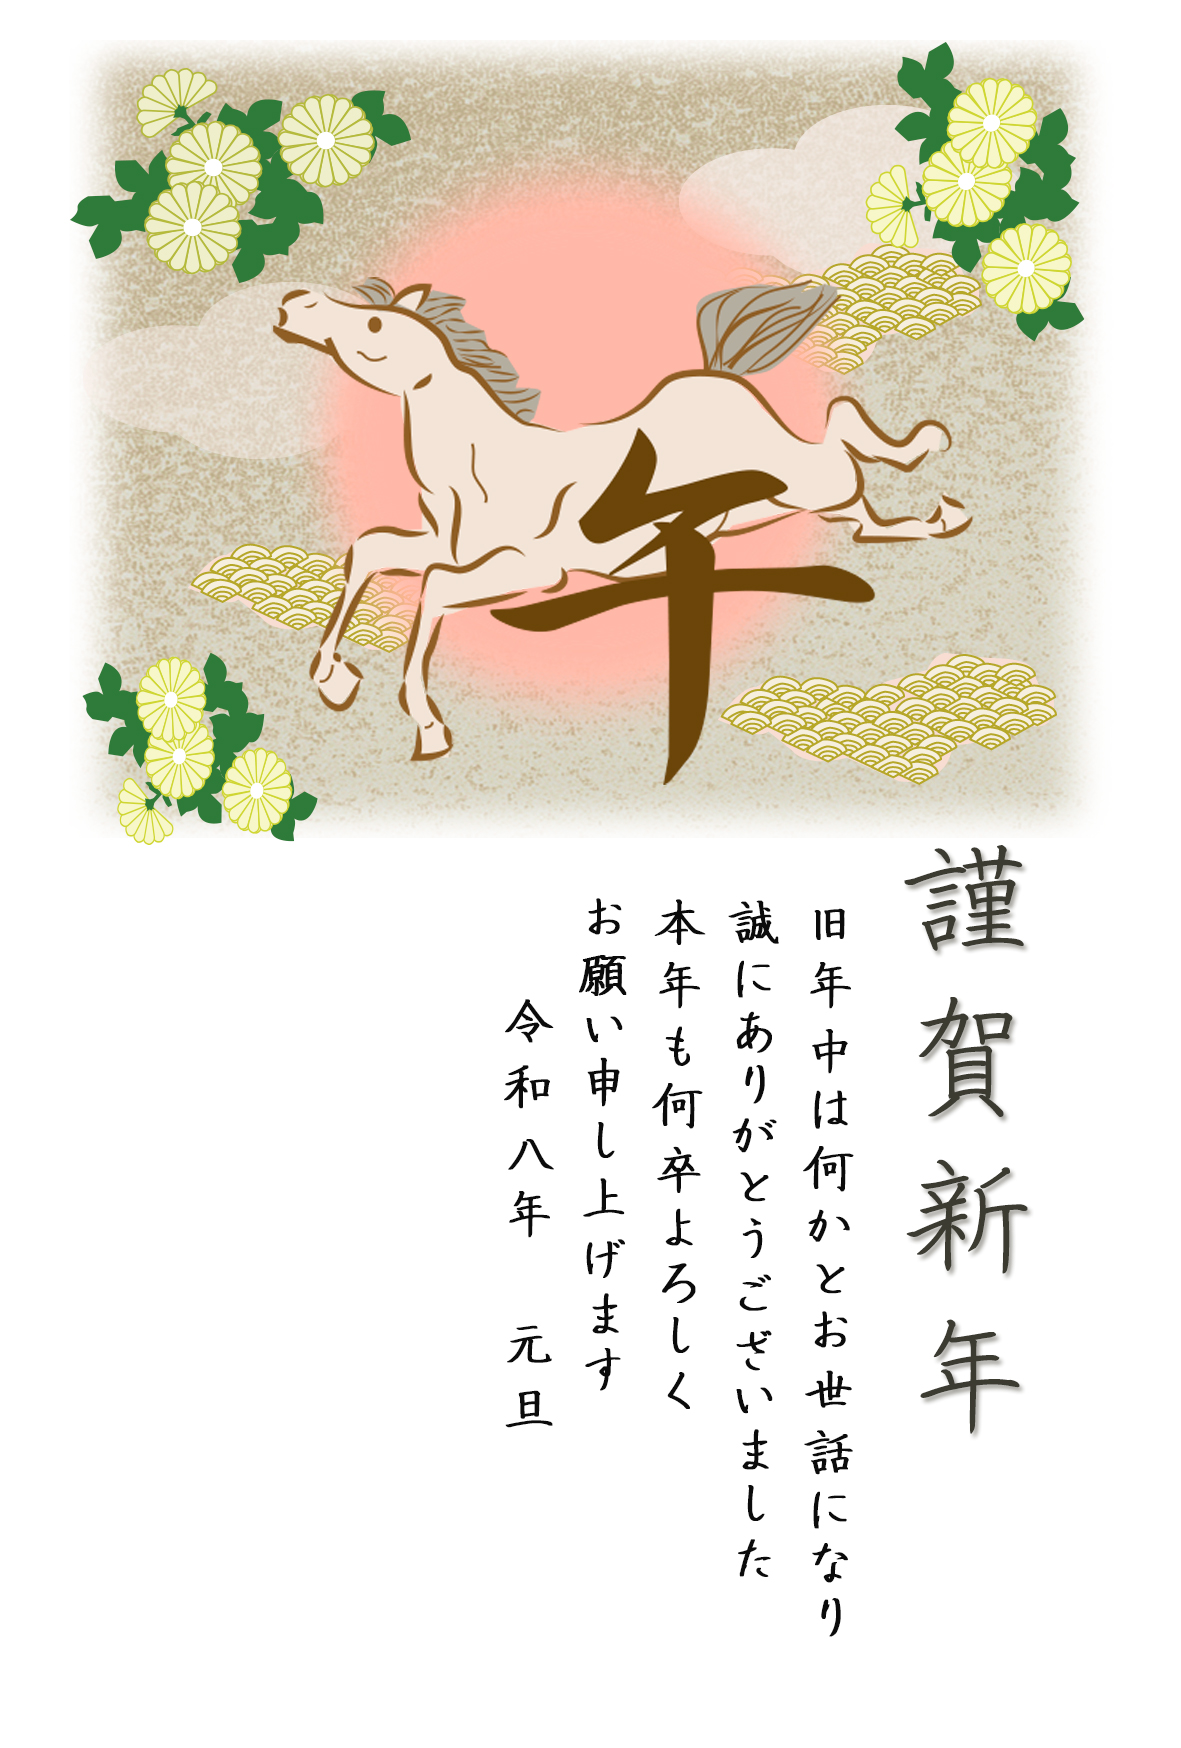 午
謹賀新年
旧年中は何かとお世話になり
誠にありがとうございました
本年も何卒よろしく
お願い申し上げます
令和八年　元旦